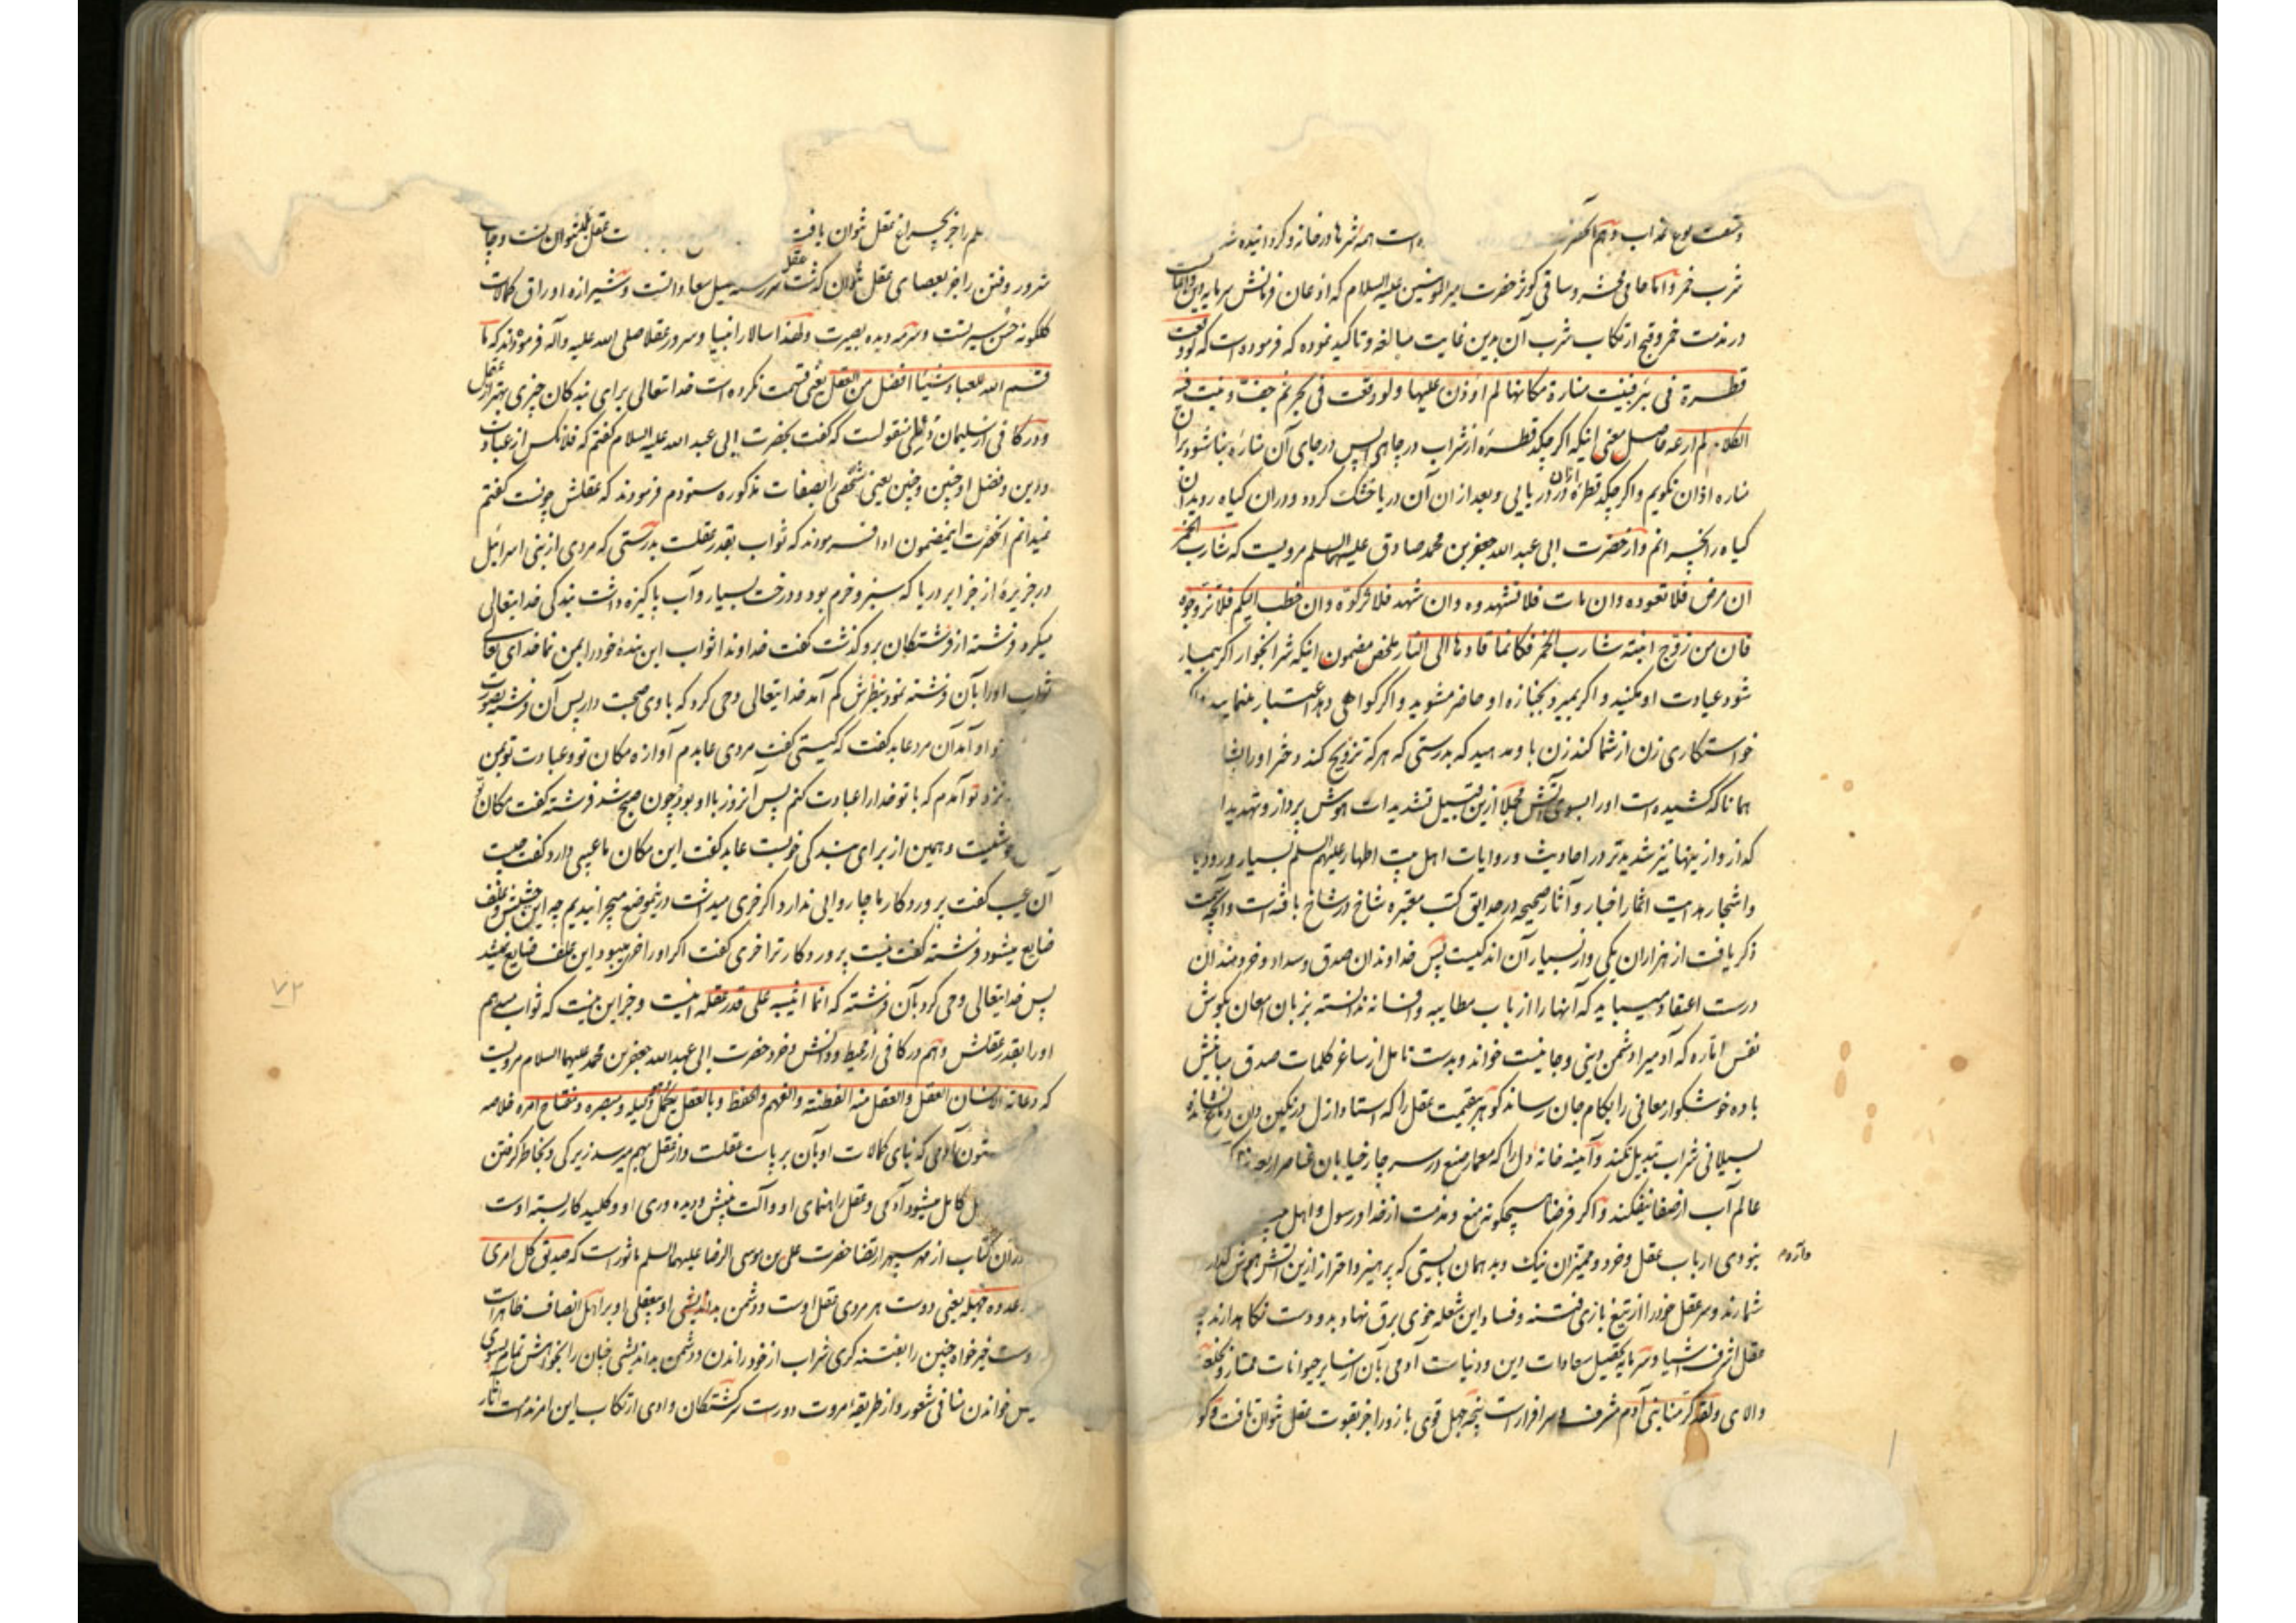 است همه شرها در خانه و گردانیده شد
شرب خمر و اما حامی محشر و ساقی کوثر حضرت امیرالمومنین علیه السلام که اذعان فرمانش سرمایه دین و
در مذمت خمر و قبح ارتکاب شرب آن بدین غایت مبالغه و تاکید نموده که فرموده است که لو وقعت
قطرة فی بئر فبنیت منارة مکانها لم اوذن علیها و لو وقعت فی بحر ثم جف و نبت فیه
الکلاء لم ارعه حاصل معنی اینکه اگر چکد قطرهٔ از شراب در چاهی پس در جای آن مناره بنا شود بران
مناره اذان نگویم و اگر چکد قطرهٔ ازان در دریایی و بعد از ان آن دریا خشک گردد و دران گیاه روید آن
گیاه را نچرانم و از حضرت ابی عبدالله جعفر بن محمد صادق علیهما السلم مرویست که شارب الخمر
ان مرض فلا تعودوه و ان مات فلا تشهدوه و ان شهد فلا تزکوه و ان خطب الیکم فلا تزوجوه
فان من زوج ابنته شارب الخمر فکانما قادها الی النار ملخص مضمون اینکه شرابخوار اگر بیمار
شود عیادت او مکنید و اگر بمیرد بجنازه او حاضر مشوید و اگر گواهی دهد اعتبار منمایید و اگر
خواستگاری زن از شما کند زن باو مدهید که بدرستی که هر که تزویج کند دختر او را
همانا که کشیده است او را بسوی آتش مجملا ازین قبیل تشدیدات هوش پرداز و تهدیدا
که از و ازینها نیز شدیدتر در احادیث و روایات اهل بیت اطهار علیهم السلم بسیار ورود یا
و اشجار هدایت اثمار اخبار و آثار صحیحه در حدایق کتب معتبره شاخ در شاخ بافته است و آنچه
ذکر یافت از هزاران یکی و از بسیار آن اندکیست پس خداوندان صدق و سداد و خردمندان
درست اعتقاد میباید که آنها را از باب مطایبه و افسانه ندانسته بزبان امعان بگوش
نفس اماره که آدمی را دشمن دینی و جانیست خواند و بدست تامل از ساغر کلمات صدق مبانیش
باده خوشگوار معانی را بکام جان رساند گوهر بیقیمت عقل را که استاد ازل در نگین دان دماغ نشانده
بسیلانی شراب تبدیل نکند و آیینه خانه دل را که معمار صنع در سر چار خیابان عناصر اربعه
عالم آب از صفا نیفکند و اگر فرضا هیچگونه منع و مذمت از خدا و رسول و اهل بیت
نبودی ارباب عقل و خرد و ممیزان نیک و بد همان بایستی که پرهیز و احتراز ازین آتش
شمارند و سر عقل خود را از تیغ بازی فتنه و فساد این شعله خوی برق نهاد بدو دست نگاهدارند چه
عقل اشرف اشیا و سرمایه تحصیل سعادات دین و دنیاست آدمی بآن از سایر حیوانات ممتاز و بخلعت
والای و لقد کرمنا بنی آدم مشرف و سرافراز است پنجه جهل قوی بازو را جز بقوت عقل نتوان تافت و گو
علم را جز بچراغ عقل نتوان یافت
شرور و فتن را جز بعصای عقل نتوان گذشت عقل سررشته نیل سعاداتست و شیرازه اوراق کمالات
گلگونه حسن سیرتست و سرمه دیده بصیرت و لهذا سالار انبیا و سرور عقلا صلی الله علیه و آله فرموده اند که ما
قسم الله للعباد شیئا افضل من العقل یعنی قسمت نکرده است خدا تعالی برای بندگان چیزی بهتر از عقل
و در کافی از سلیمان دیلمی منقولست که گفت بحضرت ابی عبدالله علیه السلام گفتم که فلانکس از عبادت
و دین و فضل او چنین و چنین یعنی شخصی را بصفات مذکوره ستودم فرمودند که عقلش چونست گفتم
نمیدانم آنحضرت اینمضمون ادا فرمودند که ثواب بقدر عقلست بدرستی که مردی از بنی اسرائیل
در جزیرهٔ از جزایر دریا که سبز و خرم بود و درخت بسیار و آب پاکیزه داشت بندگی خدایتعالی
میکرد فرشته از فرشتگان برو گذشت گفت خداوندا ثواب این بندهٔ خود را بمن نما خدای تعالی
ثواب او را بآن فرشته نمود بنظرش کم آمد خدایتعالی وحی کرد که باوی صحبت دار پس آن فرشته بصورت
او آمد آن مرد عابد گفت که کیستی گفت مردی عابدم آوازه مکان تو و عبادت تو بمن
نزد تو آمدم که با تو خدا را عبادت کنم پس آنروز با او بود چون صبح شد فرشته گفت مکان تو
و همین از برای بندگی خوبست عابد گفت این مکان ما عیبی دارد گفت چیست
آن عیب گفت پروردگار ما چاروایی ندارد اگر خری میداشت درینموضع میچرانیدیم چه این حشیش و علف
ضایع میشود فرشته گفت نیست پروردگار ترا خری گفت اگر او را خر میبود این علف ضایع نمیشد
پس خدایتعالی وحی کرد بآن فرشته که انما اثیبه علی قدر عقله اینست و جز این نیست که ثواب میدهم
او را بقدر عقلش و هم در کافی از محیط دانش و خرد حضرت ابی عبدالله جعفر بن محمد علیهما السلام مرویست
که دعامة الانسان العقل و العقل منه الفطنة و الفهم و الحفظ و بالعقل یکمل و هو دلیله و مبصره و مفتاح امره خلاصه
ستون آدمی که بنای کمالات او بآن برپاست عقلست و از عقل بهم میرسد زیرکی و بخاطر گرفتن
کامل میشود آدمی و عقل راهنمای او و آلت بینش و دیده وری او و کلید کار بسته اوست
دران کتاب از مهر سپهر ارتضا حضرت علی بن موسی الرضا علیهما السلم ماثور است که صدیق کل امری
عقله و عدوه جهله یعنی دوست هر مردی عقل اوست و دشمن بداندیش او بیعقلی او بر اهل انصاف ظاهر است
دوست خیرخواه چنین را بفتنه گری شراب از خود راندن و دشمن بداندیشی چنان را بخواهش تمام بسوی
خویش خواندن منافی شعور و از طریقهٔ مروت دور است سرگشتگان وادی ارتکاب این امر ندامت آثار
۷۲